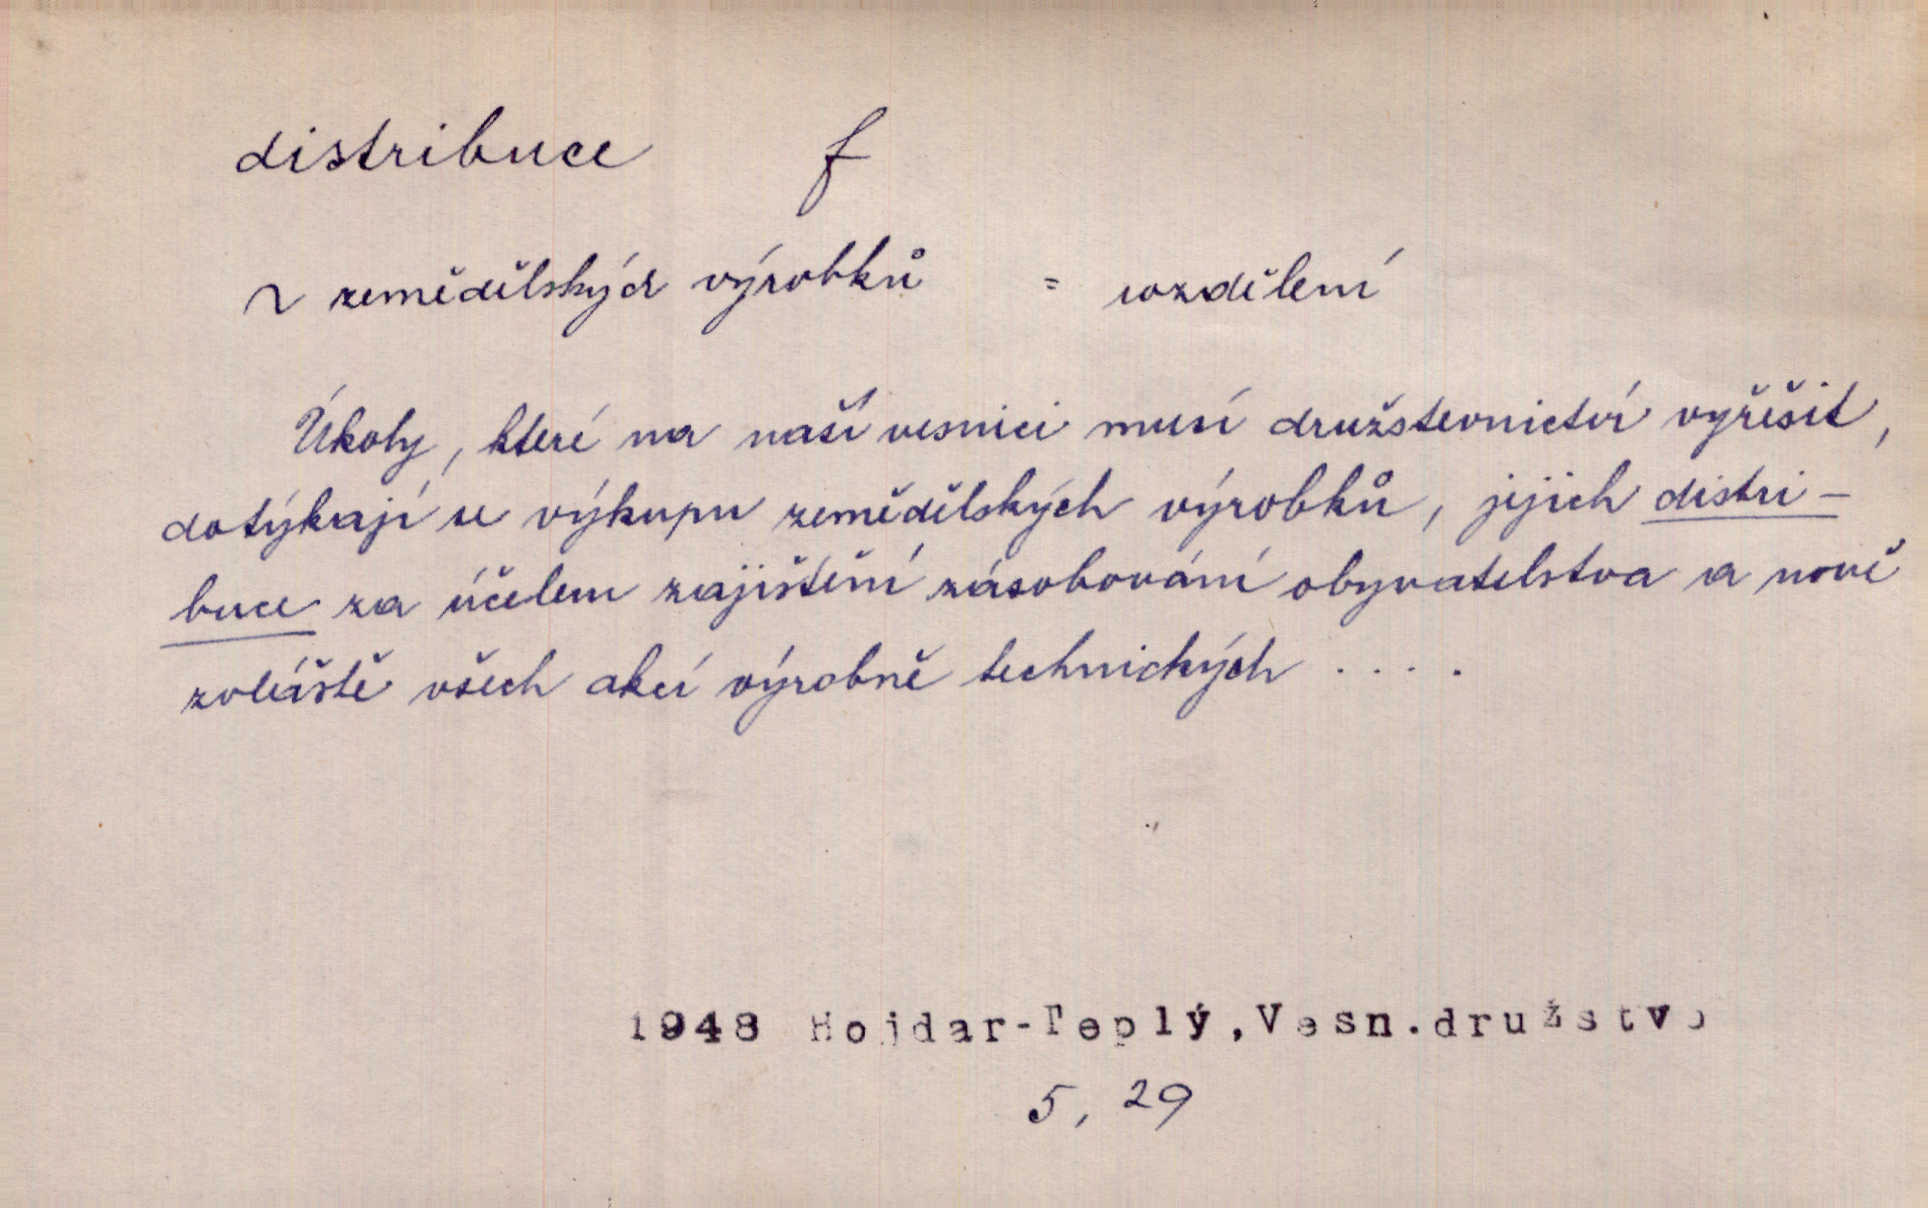 distribuce f
~ zemědělských výrobků = rozdělení
Úkoly, které na naší vesnici musí družstevnictví vyřešit,
dotýkají se výkupu zemědělských výrobků, jejich distri-
buce za účelem zajištění zásobování obyvatelstva a nově
zvláště všech akcí výrobně technických ....
1948 Hojdar-Teplý,Vesn.družstvo
5, 29